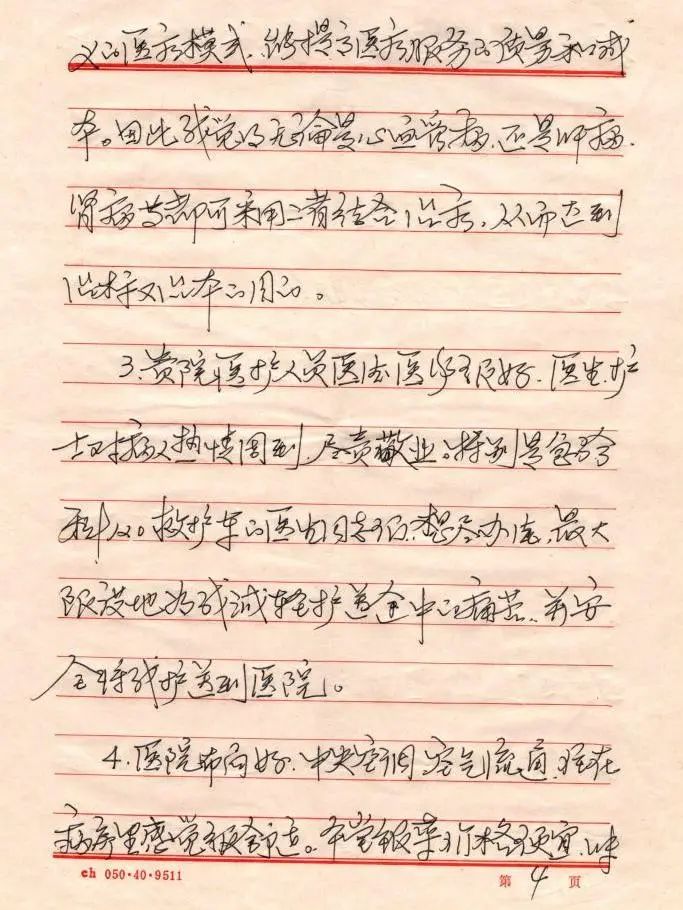 义的医疗模式,能提高医疗服务的质量和减
本。因此我觉得无论是心血管病,还是肿病,
肾病等都可采用二者结合治疗,从而达到
治标又治本的目的。
3.贵院医护人员医德医术很好,医生护
士对病人热情周到,尽责敬业。特别是急诊
科120救护车的医生同志们,想尽办法,最大
限度地为我减轻护送途中的痛苦,并安
全将我护送到医院。
4.医院布局好,中央空调空气流通,住在
病房里感觉很舒适。食堂饭菜价格便宜,味
ch 050·40·9511
第 4 页